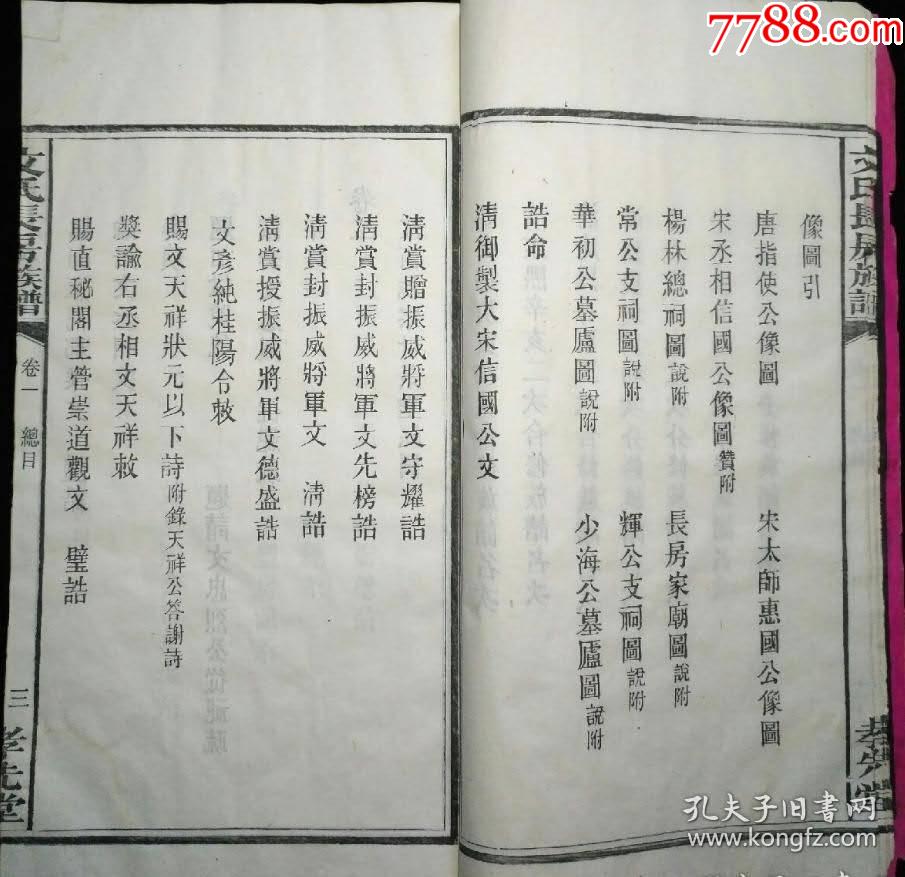 7788.com
文氏長房族譜
像圖引
唐指使公像圖 宋太師惠國公像圖
宋丞相信國公像圖贊附
楊林總祠圖說附 長房家廟圖說附
常公支祠圖說附 輝公支祠圖說附
華初公墓廬圖說附 少海公墓廬圖說附
誥命
清御製大宋信國公文
孝先堂
清賞贈振威將軍文守耀誥
清賞封振威將軍文先榜誥
清賞封振威將軍文 清誥
清賞授振威將軍文德盛誥
文彥純桂陽令敕
賜文天祥狀元以下詩附錄天祥公答謝詩
獎諭右丞相文天祥敕
賜直秘閣主管崇道觀文 璧誥
文氏長房族譜
卷一 總目
三 孝先堂
孔夫子旧书网
www.kongfz.com